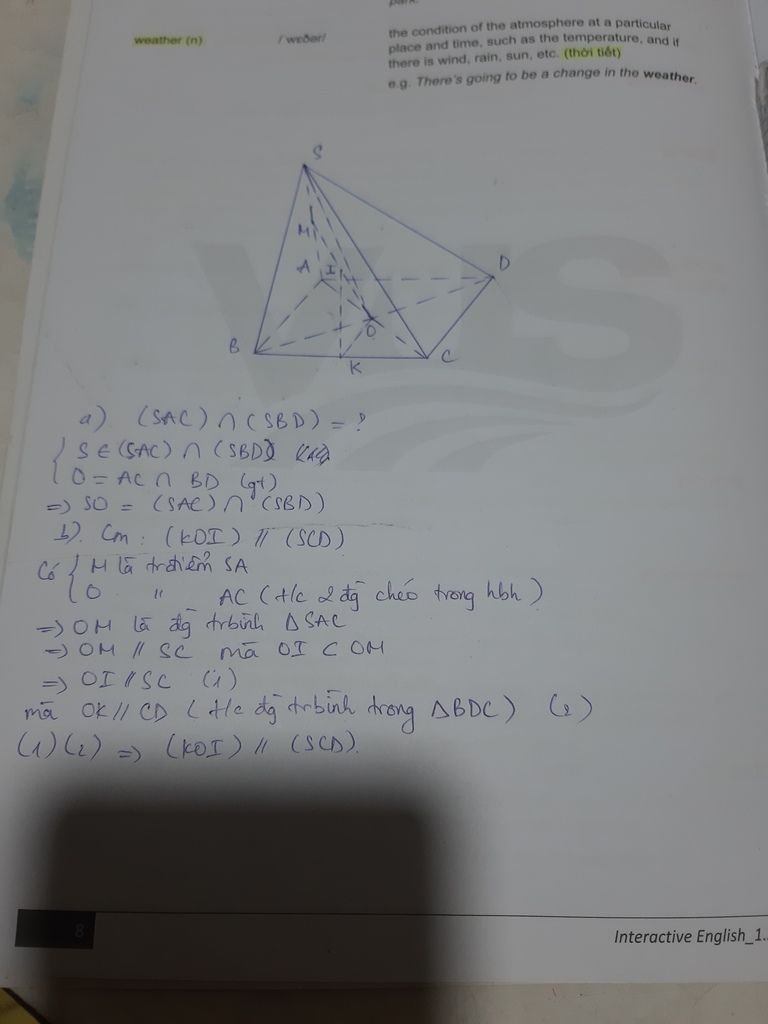 weather (n) /ˈweðər/ the condition of the atmosphere at a particular
place and time, such as the temperature, and if
there is wind, rain, sun, etc. (thời tiết)
e.g. There's going to be a change in the weather.
S
M
A I D
O
B K C
a) (SAC) ∩ (SBD) = ?
{ S ∈ (SAC) ∩ (SBD)
O = AC ∩ BD (gt)
=> SO = (SAC) ∩ (SBD)
b). Cm : (KOI) // (SCD)
Có { M là trđiểm SA
O " AC (t/c 2 đg chéo trong hbh)
=> OM là đg trbình ΔSAC
=> OM // SC mà OI ⊂ OM
=> OI // SC (1)
mà OK // CD (t/c đg trbình trong ΔBDC) (2)
(1)(2) => (KOI) // (SCD).
8
Interactive English_1..